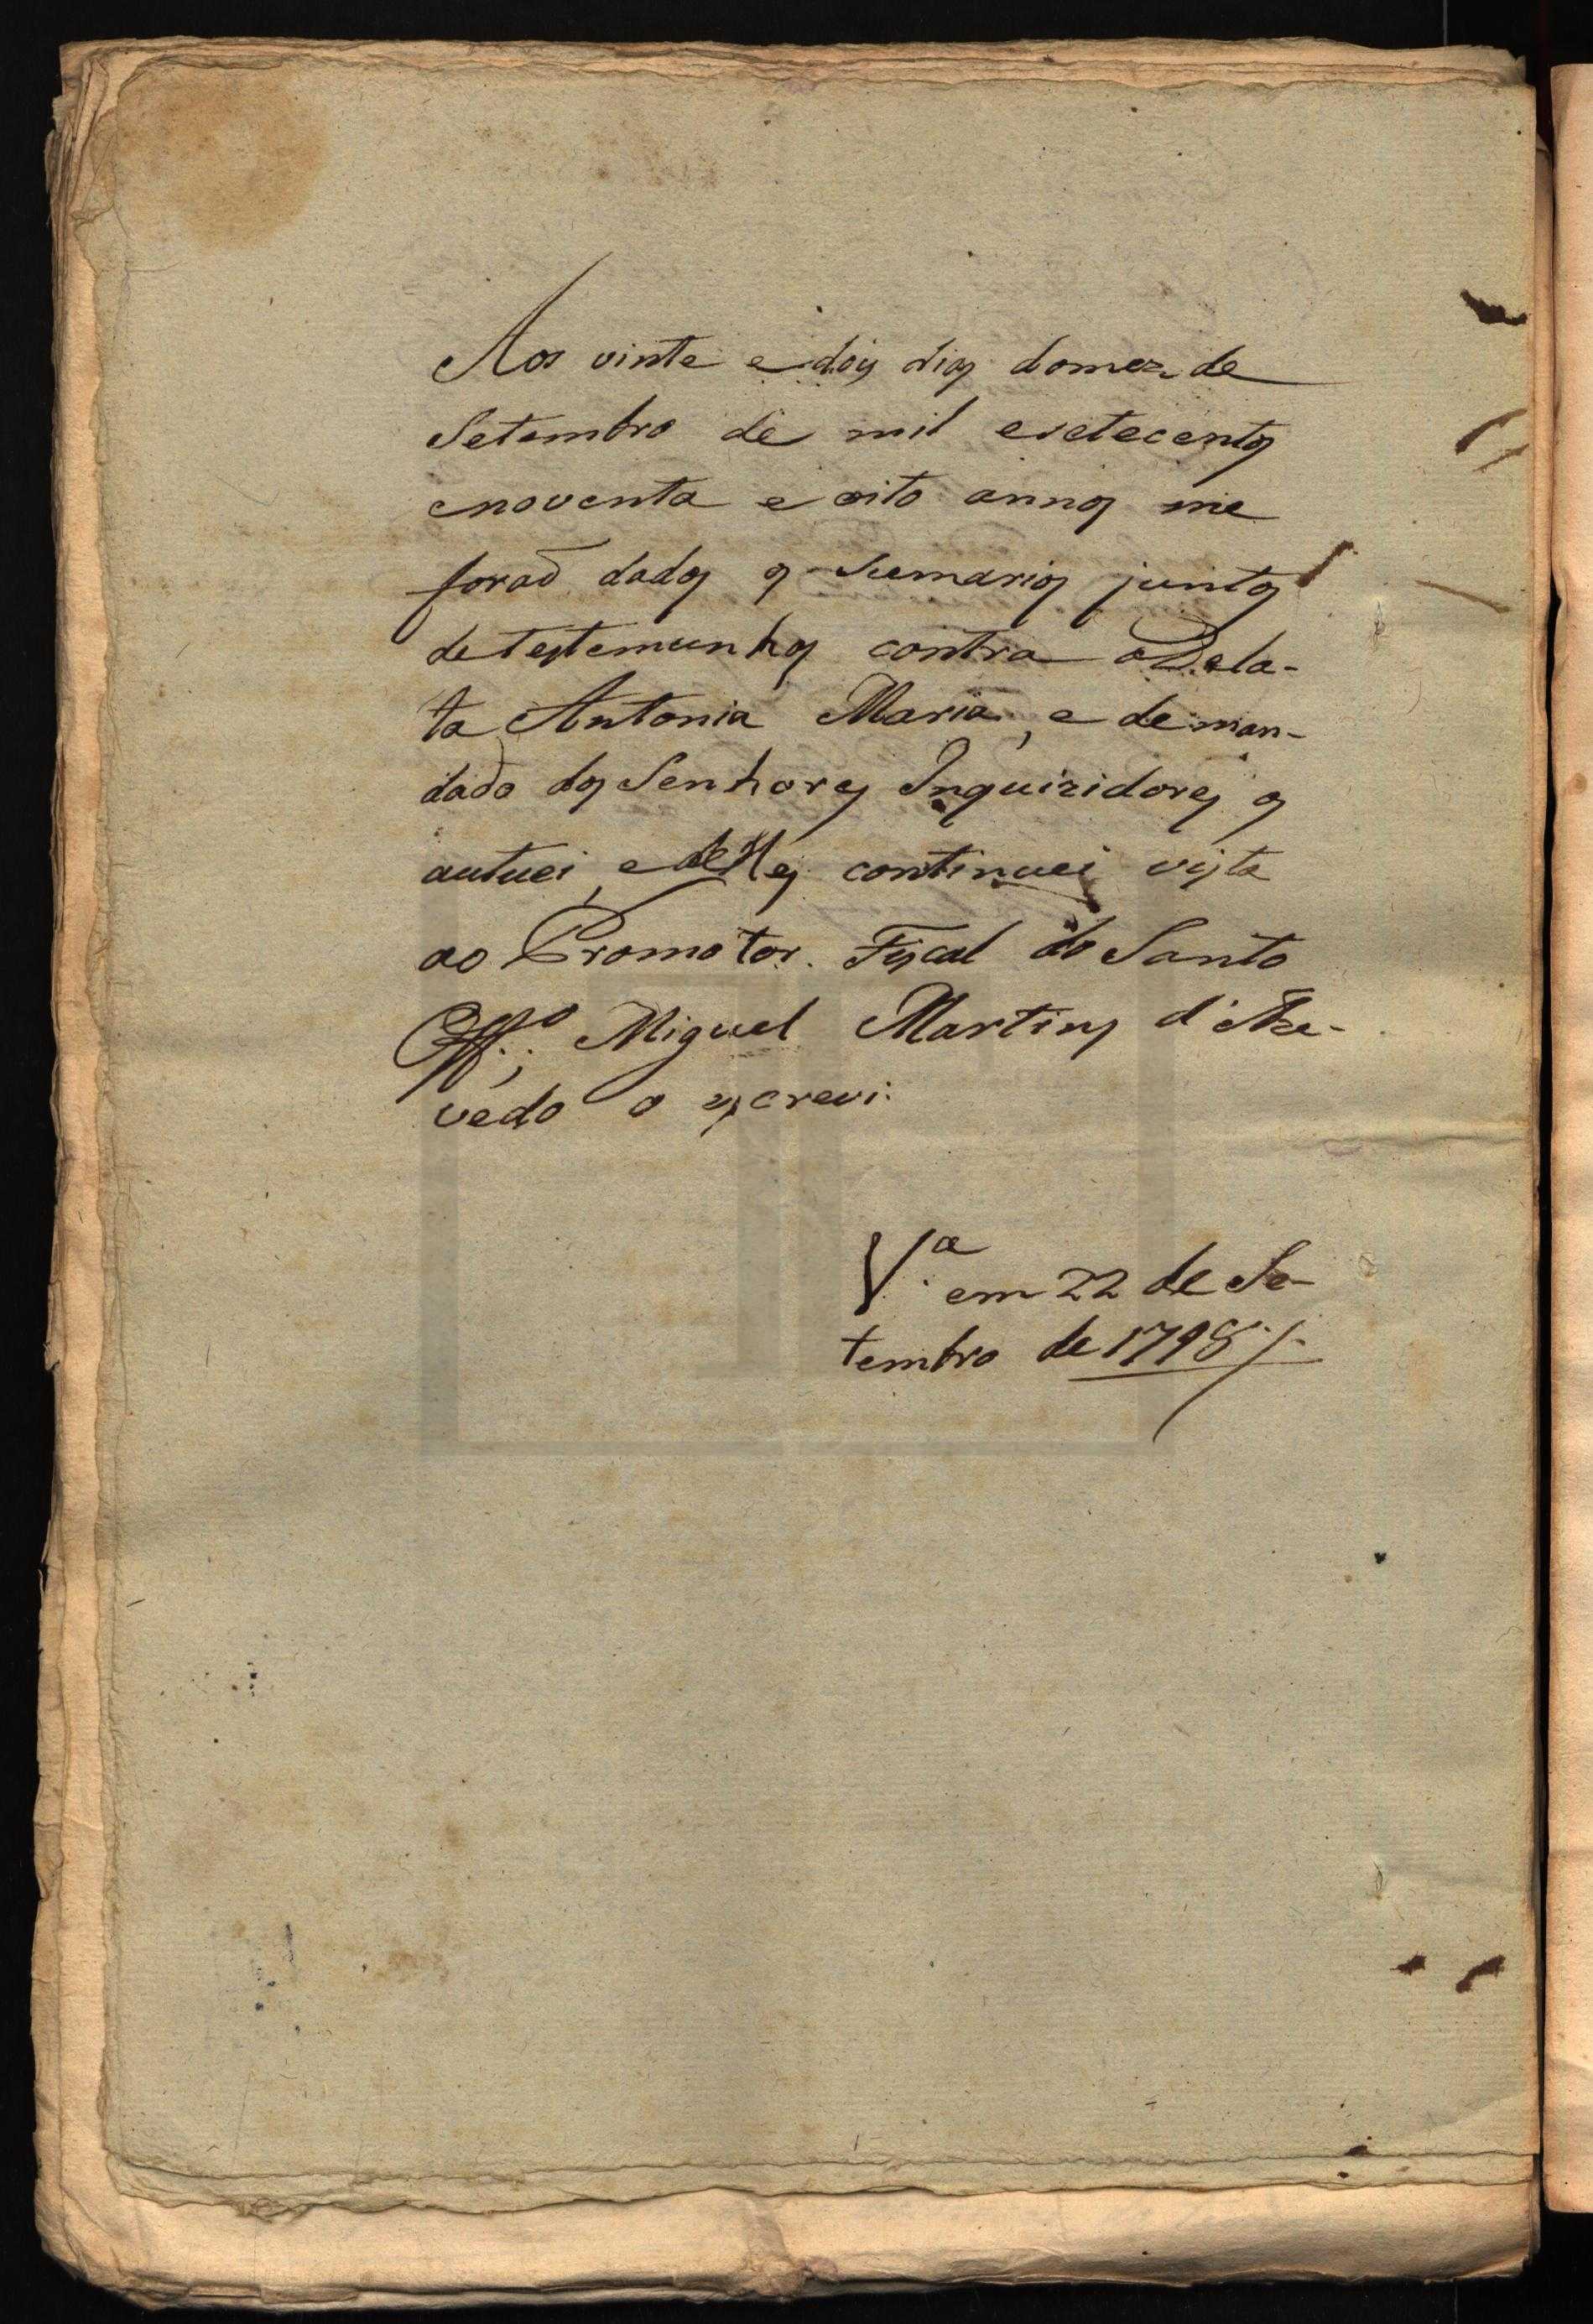 Aos vinte e dois dias domez de
Setembro de mil esetecentos
enoventa e oito annos me
foraõ dados os sumarios juntos
detestemunhas contra aDela-
ta Antonia Maria, e deman-
dado dos Senhores Inquizidores os
autuei, e delles continuei vista
ao Promotor Fiscal do Santo
Off.º; Miguel Martins d'Aze-
vedo o escrevi.
V.ª em 22 de Se-
tembro de 1798